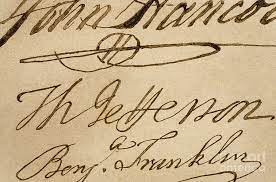 John Hancoc
Th Jefferson
Benjᵃ Franklin